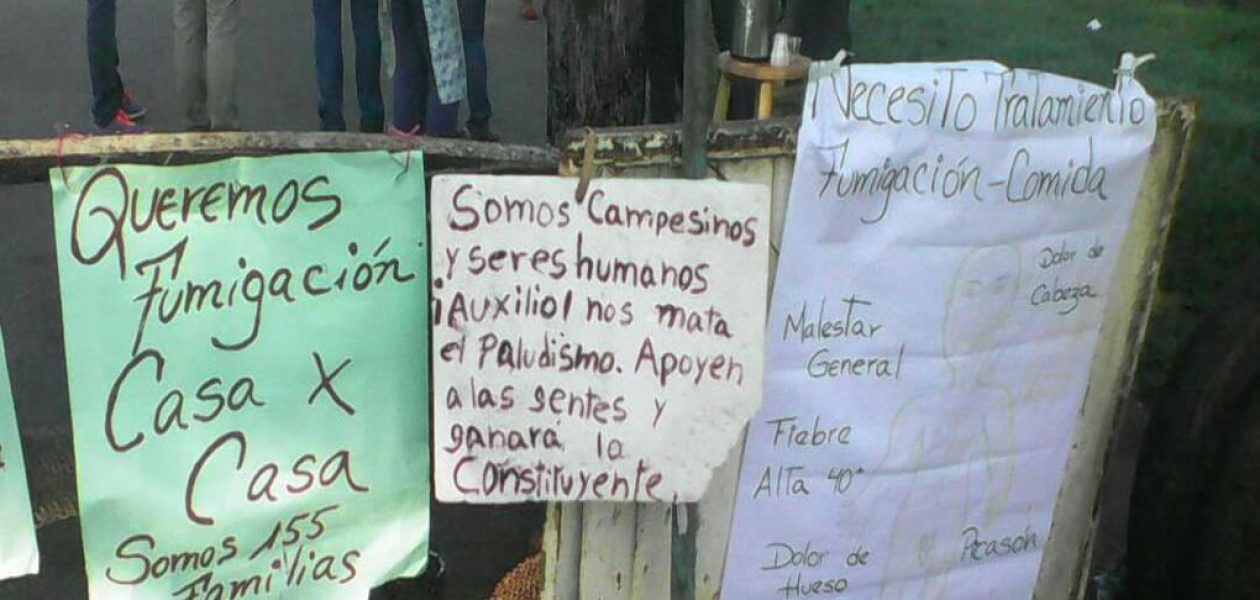 Queremos
Fumigación
Casa X
Casa
Somos 155
Familias
Somos Campesinos
y seres humanos
¡Auxilio! nos mata
el Paludismo. Apoyen
a las gentes y
ganará la
Constituyente.
¡Necesito Tratamiento
Fumigación-Comida
Dolor de
Cabeza
Malestar
General
Fiebre
Alta 40°
Dolor de
Hueso
Picasón